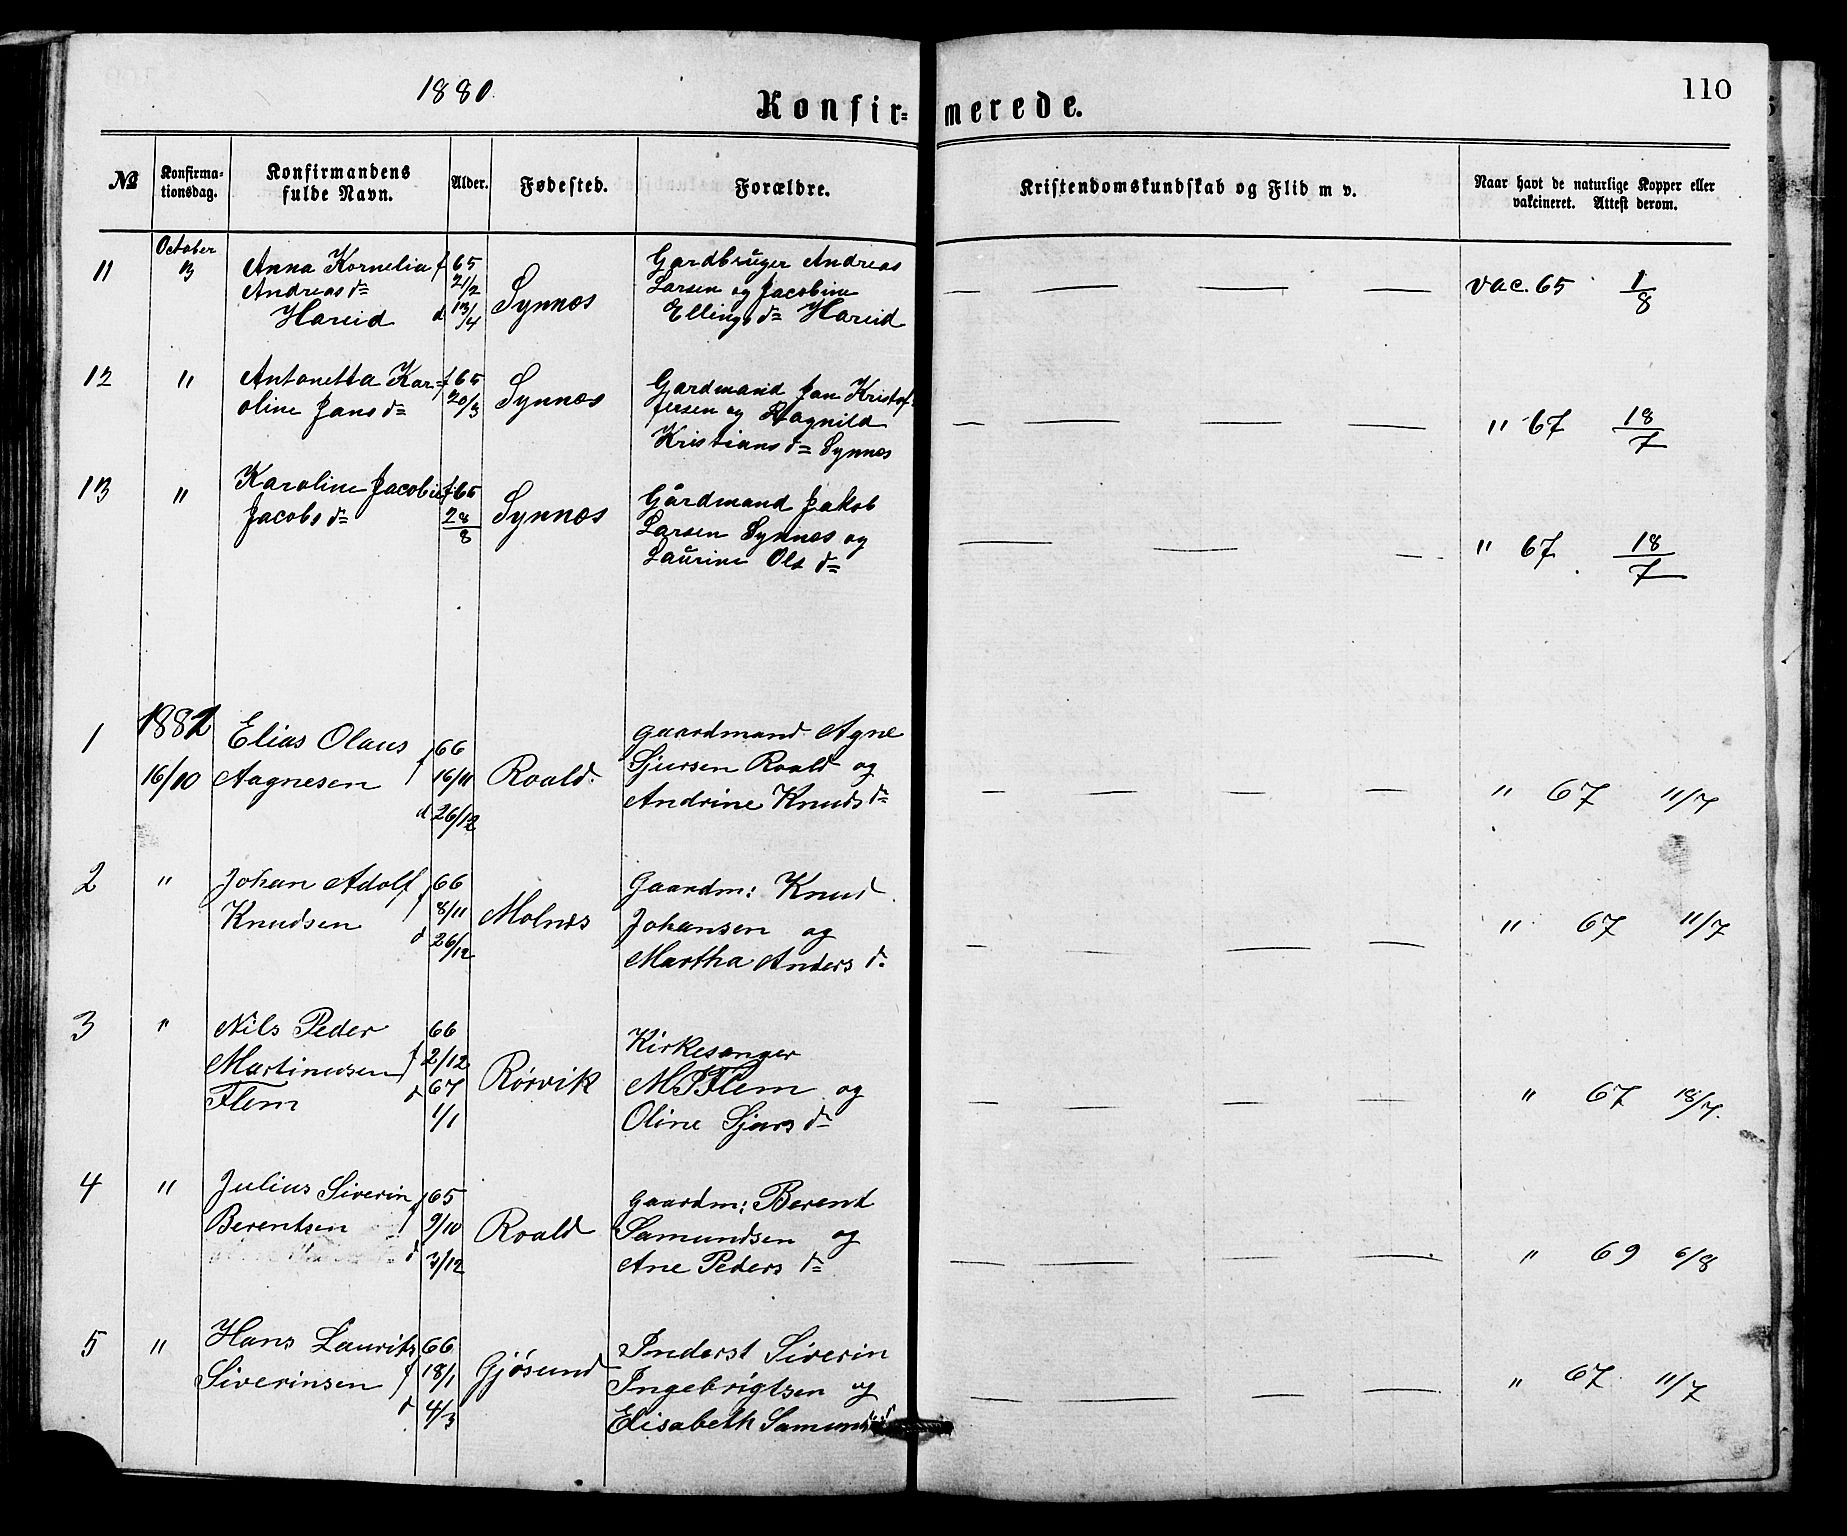 1880.
110
Konfir=merede.
№
Konfirma-
tionsdag.
Konfirmandens
fulde Navn.
Alder.
Fødested.
Forældre.
Kristendomskundskab og Flid m v.
Naar havt de naturlige Kopper eller
vakcineret. Attest derom.
October
11 13 Anna Kornelia f 65 Synnæs Gardbruger Andreas — — — — vac. 65 1/8
Andreas d= 21/2 Larsen og Jacobine
Hareid d 13/4 Ellings d= Hareid
12 " Antonetta Kar- f 65 Synnæs Gardmand Jan Kristof- — — — — " 67 18/7
oline Jans d= 20/3 fersen og Ragnild
Kristians d= Synnæs
13 " Karoline Jacobine f 65 Synnæs Gårdmand Jakob — — — " 67 18/7
Jacobs d= 28/8 Larsen Synnæs og
Laurine Ols d=
1881
1 16/10 Elias Olaus f 66 Roald. gaardmand Agne — — — — " 67 11/7
Aagnesen 16/11 Sjursen Roald og
d 26/12 Andrine Knuds d=
2 " Johan Adolf f 66 Molnes Gaardm: Knud — — — — " 67 11/7
Knudsen 8/11 Johansen og
d 26/12 Martha Anders d.
3 " Nils Peder 66 Rørvik Kirkesanger — — — — " 67 18/7.
Martinusen f 2/12 M P Flem og
Flem d 67 Oline Sjurs d=
1/1
4 " Julius Siverin f 65 Roald gaardm: Berent — — — — " 69 6/8
Berentsen 9/10 Samundsen og
d 3/12 Ane Peders d=
5 " Hans Laurits 66 Gjøsund Inderst Siverin — — — — " 67 11/7
Siverinsen f 18/1 Ingebrigtsen og
d 4/3 Elisabeth